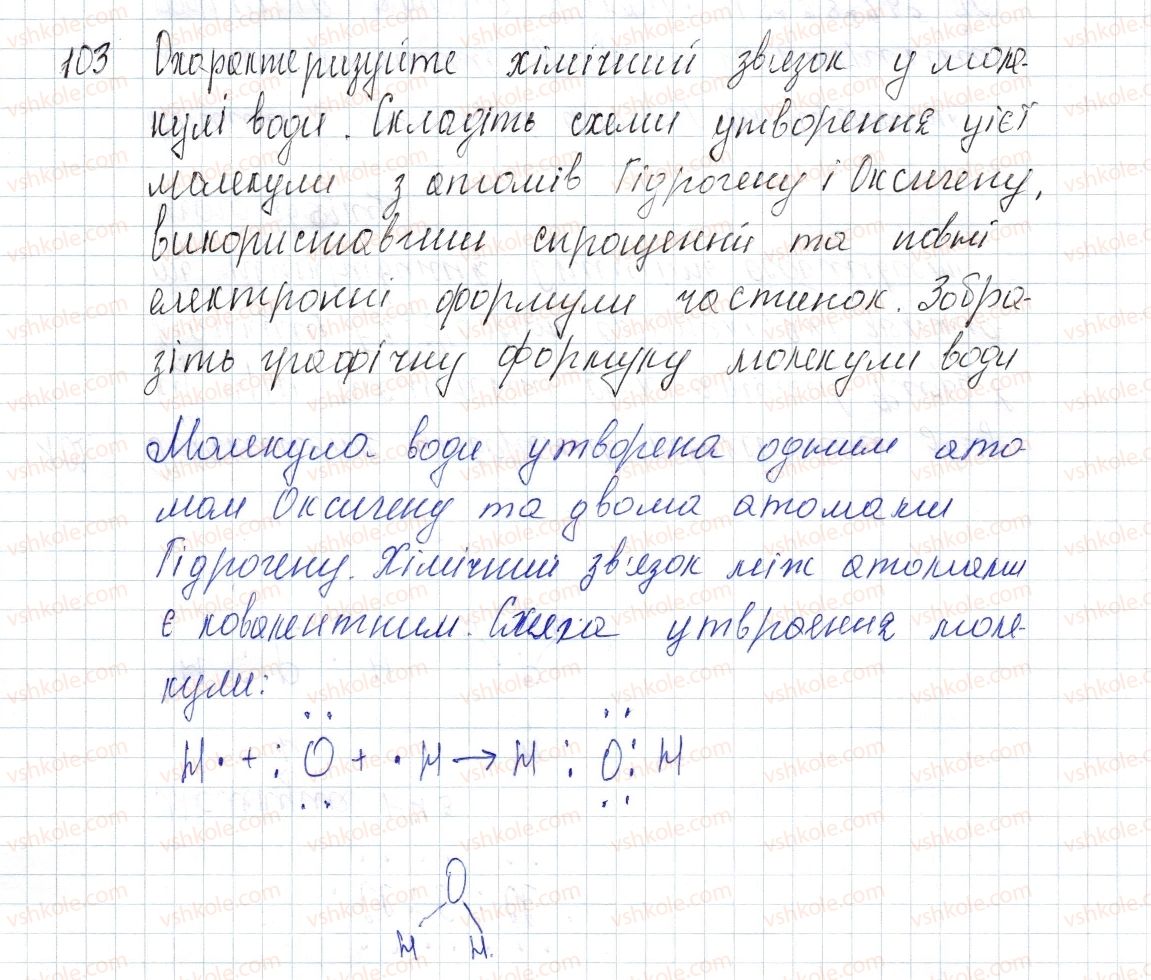 103 Охарактеризуйте хімічний зв'язок у моле-
кулі води. Складіть схеми утворення цієї
молекули з атомів Гідрогену і Оксигену,
використавши спрощенній та повні
електронні формули частинок. Зобра-
зіть графічну формулу молекули води
Молекула води утворена одним ато
мом Оксигену та двома атомами
Гідрогену. Хімічний зв'язок між атомами
є ковалентним. Схема утврання моле-
кули:
H· + :O + ·H → H :O: H
O
H H.